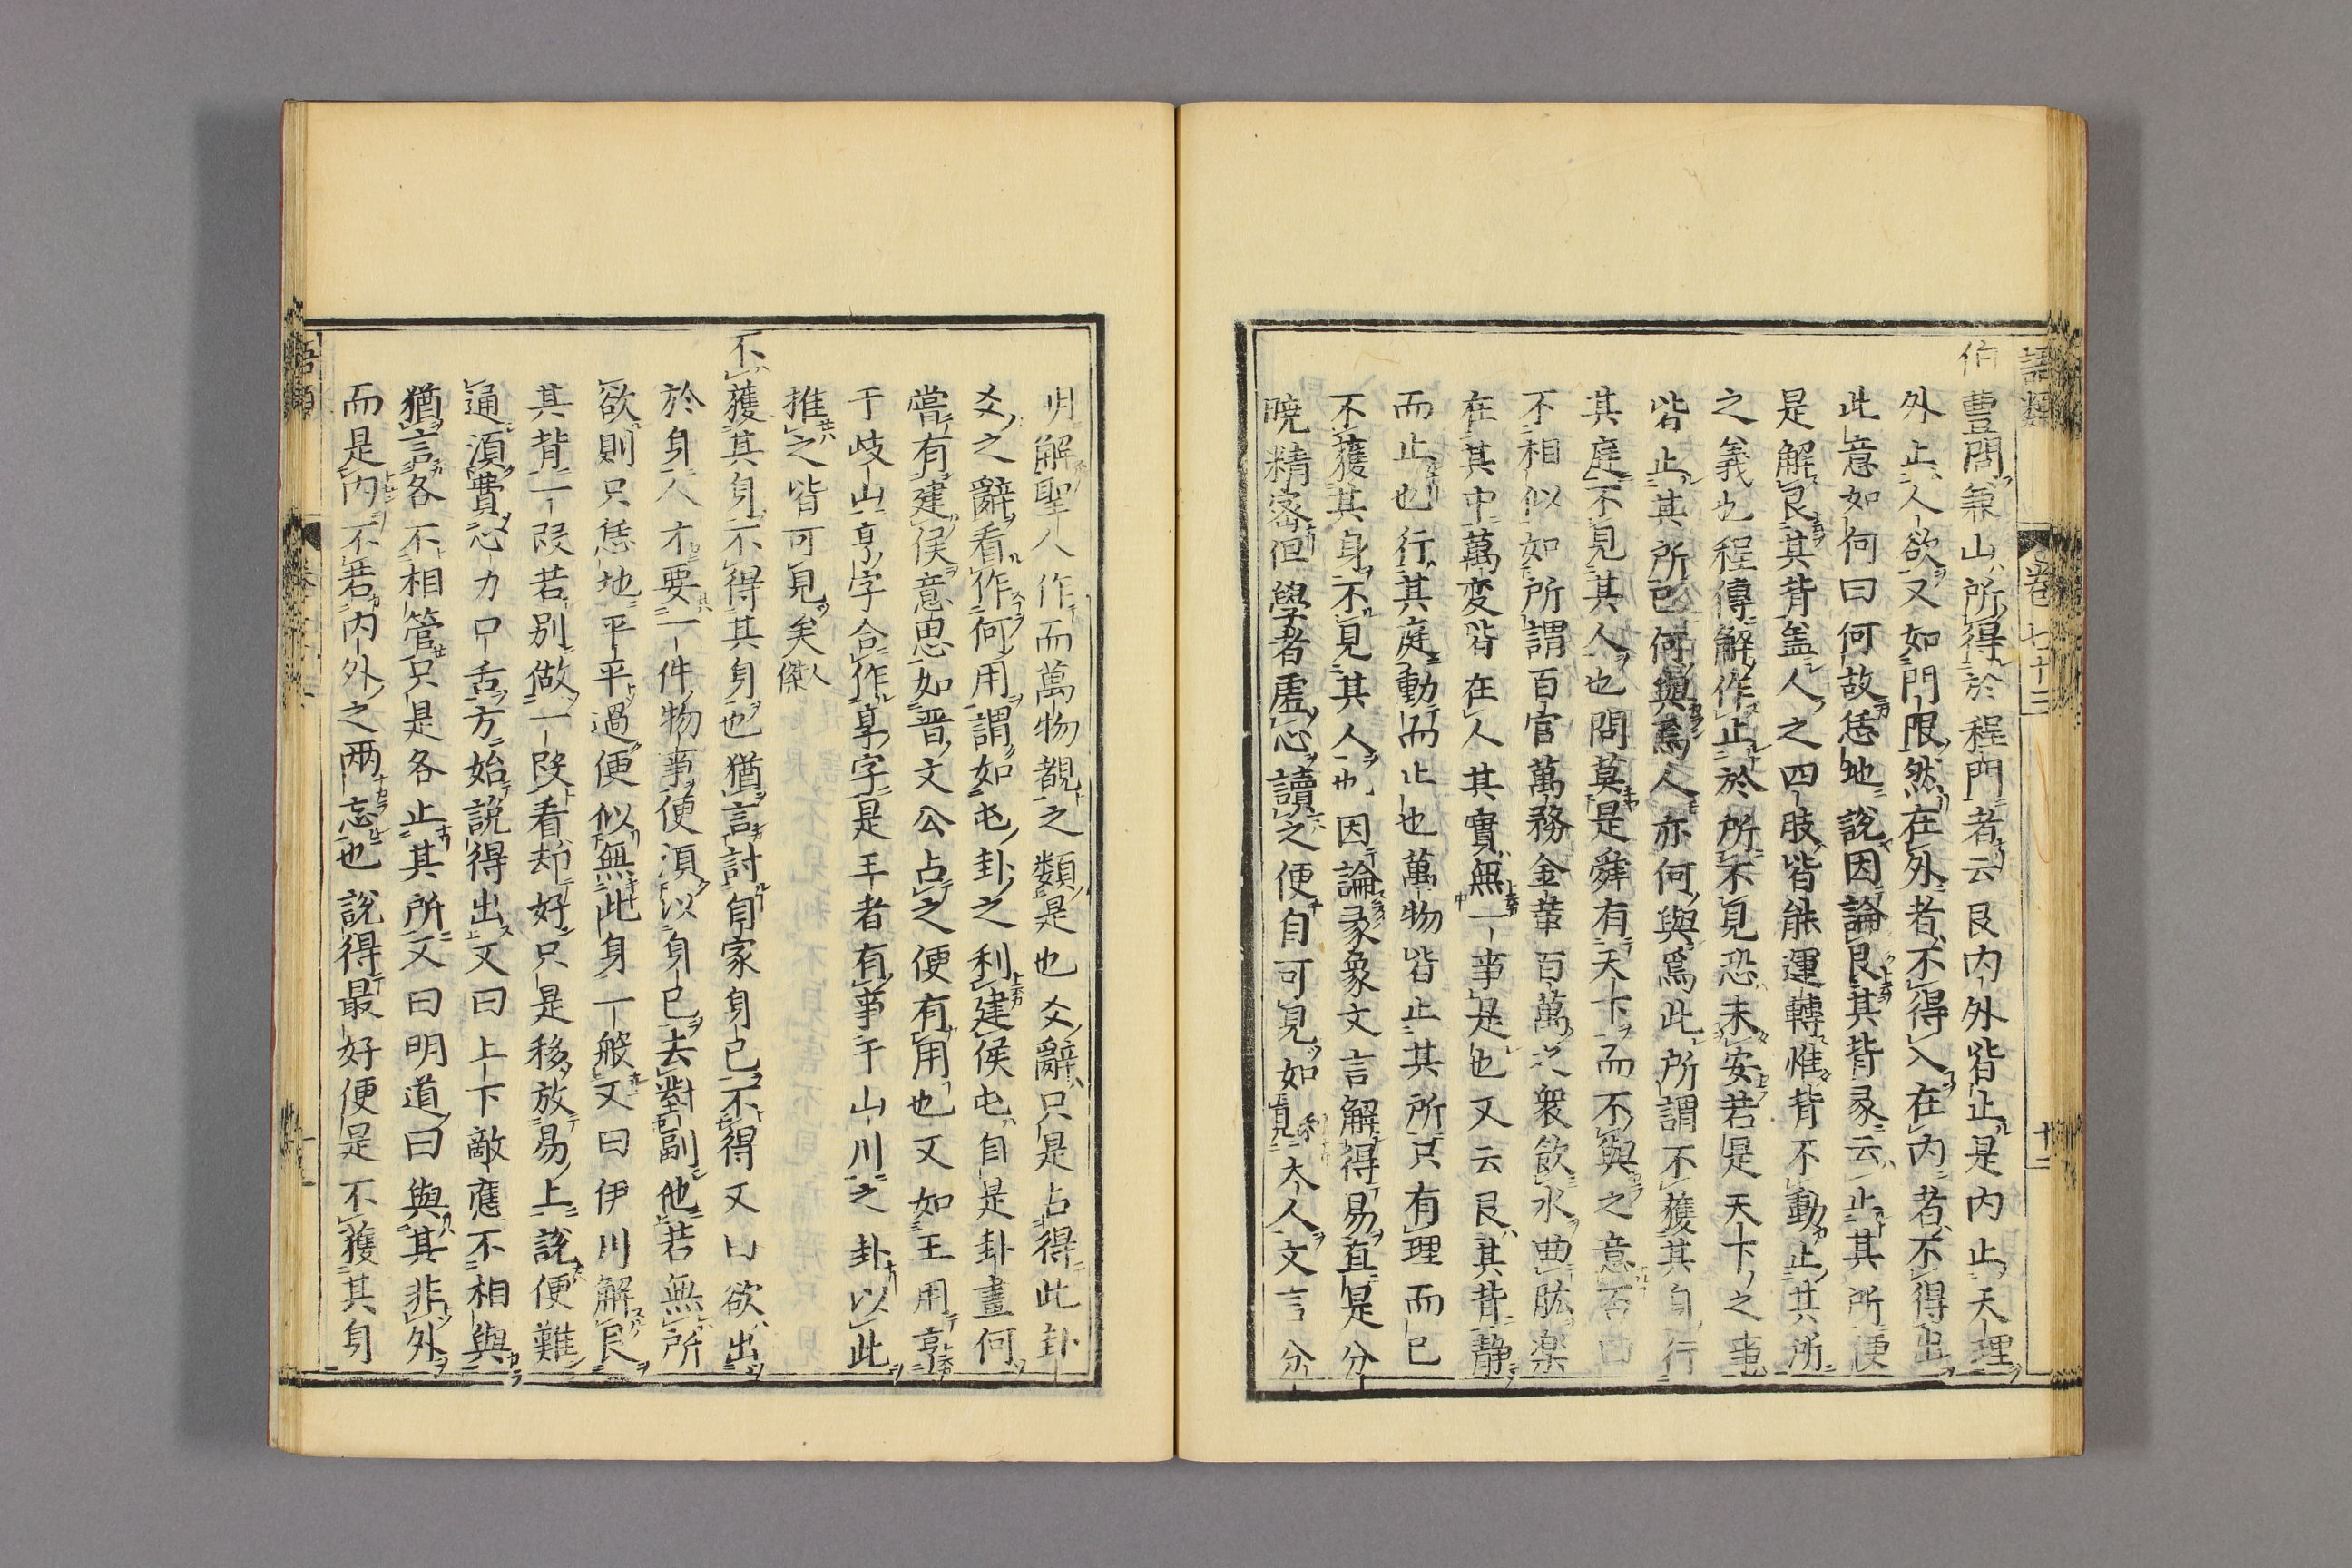 語類 卷七十三 十二
伯豊問兼山所得於程門者云艮内外皆止是内止天理
外止人欲又如門限然在外者不得入在内者不得出
此意如何曰何故恁地說因論艮其背彖云止其所便
是解艮其背盖人之四肢皆能運轉惟背不動止其所
之義也程傳解作止於所不見恐未安若是天下之事
皆止其所己何與焉人亦何與焉此所謂不獲其身行
其庭不見其人也問莫是舜有天下而不與之意否曰
不相似如所謂百官萬務金革百萬之衆飲水曲肱樂
在其中萬変皆在人其實無一事是也又云艮其背静
而止也行其庭動而止也萬物皆止其所只有理而已
不獲其身不見其人也因論彖象文言解得易直是分
曉精密但學者虚心讀之便自可見如利見大人文言分
明解聖人作而萬物覩之類是也爻辭只是占得此卦
爻之辭看作何用謂如屯卦之利建侯屯自是卦畫何
嘗有建侯意思如晋文公占之便有用也又如王用亨
于岐山亨字合作享字是王者有事于山川之卦以此
推之皆可見矣人傑
不獲其身不得其身也猶言討自家身己不得又曰欲出
於身人才要一件物事便須以身己去對副他若無所
欲則只恁地平平過便似無此身一般又曰伊川解艮
其背一段若別做一段看却好只是移放易上說便難
通須費心力口舌方始說得出又曰上下敵應不相與
猶言各不相管只是各止其所又曰明道曰與其非外
而是内不若内外之兩忘也說得最好便是不獲其身
語類